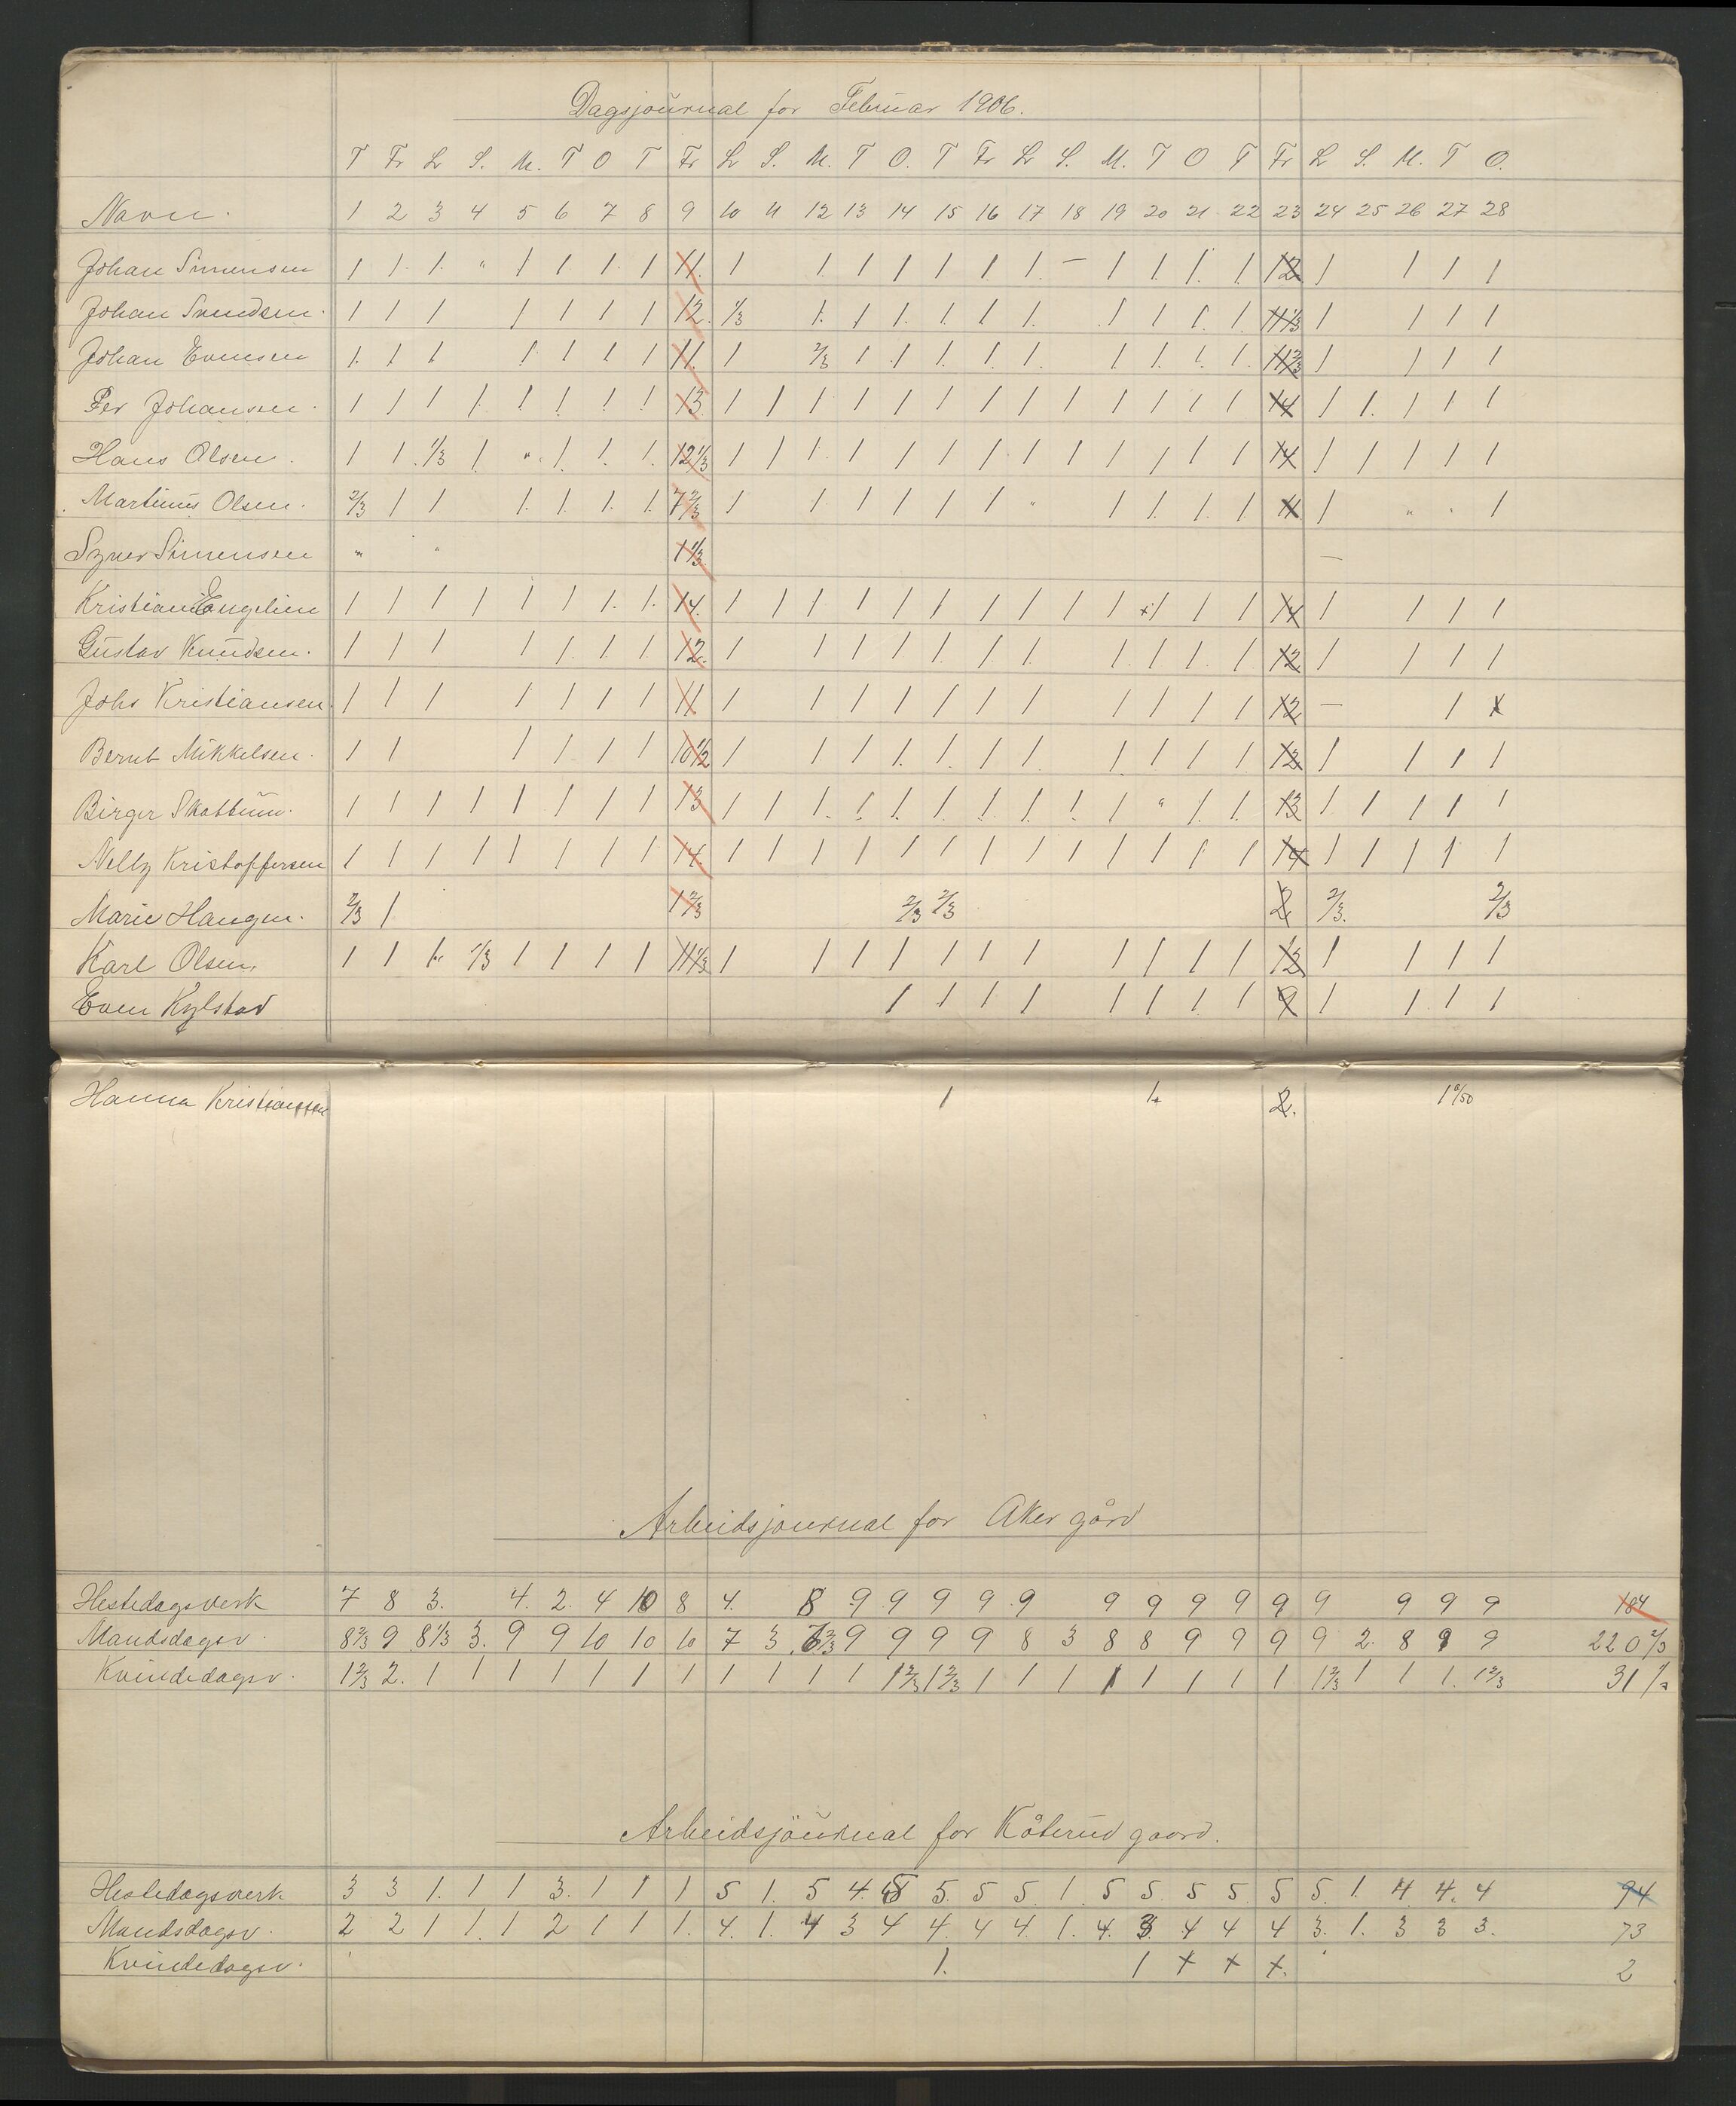 Dagsjournal for Februar 1906.
T Fr L S. M. T O T Fr L S. M. T O. T Fr L S. M. T O T Fr L S. M. T O.
Navn. 1 2 3 4 5 6 7 8 9 10 11 12 13 14 15 16 17 18 19 20 21 22 23 24 25 26 27 28
Johan Simensen 1 1. 1. " 1 1 1. 1 11. 1 1. 1 1 1 1 1. — 1 1 1. 1 12 1 1 1 1
Johan Svendsen. 1 1 1 1 1 1 1 12. 1/3 1. 1 1. 1. 1 1. 1 1 1 1. 11 1/3 1 1 1 1
Johan Evensen 1. 1 1 1. 1 1 1 11. 1 2/3 1 1 1. 1. 1. 1 1. 1 1. 11 2/3 1 1 1 1
Per Johansen. 1 1 1 1. 1. 1. 1. 1. 13. 1 1 1 1 1 1 1 1 1 1 1 1 1 14 1 1. 1 1 1
Hans Olsen. 1 1. 1/3 1 " 1. 1. 1. 12 1/3 1 1 1. 1 1 1 1 1 1 1 1 1 1 14 1 1 1 1 1
Martinus Olsen. 2/3 1 1 1. 1. 1. 1. 7 2/3 1 1 1 1 1 1 " 1 1. 1. 1 11 1 " " 1
Syver Simensen " " 1 1/3 —
Kristian Engelien 1 1 1 1 1 1 1. 1. 14. 1 1 1 1 1 1 1 1 1 1 x1 1 1 14 1 1 1 1
Gustav Knudsen. 1 1 1 1 1. 1. 1 12. 1 1 1 1 1. 1. 1. 1. 1. 1. 1. 12 1 1 1 1
Johs Kristiansen. 1 1 1 1 1 1 1 11 1 1 1 1 1 1 1 1 1 1 1 12 — 1 x
Bernt Mikkelsen. 1 1 1 1 1 1 10 1/2 1 1 1 1. 1. 1 1. 1. 1 1 1 13 1 1 1 1
Birger Skattum. 1 1 1 1 1 1 1 1 13 1 1 1. 1. 1. 1. 1. 1. 1. 1 " 1. 1. 13 1 1 1 1 1
Nelly Kristoffersen 1 1 1 1 1 1 1 1 14. 1 1 1 1 1 1 1 1 1 1 1 1 1 14 1 1 1 1 1
Marie Haugen. 2/3 1 1 2/3 2/3 2/3 2 2/3. 2/3
Karl Olsen. 1 1 1. 1/3 1 1 1 1 11 1/3 1 1 1 1 1 1 1 1 1 1 1 12 1 1 1 1
Even Kylstad 1 1 1 1 1 1 1 1 9 1 1 1 1
Hanna Kristiansen 1 1 2. 1 6/50
Arbeidsjournal for Aker gård
Hestedagsverk 7 8 3. 4. 2. 4 10 8 4. 8 9 9 9 9 9 9 9 9 9 9 9 9 9 9 184
Mandsdagsv. 8 2/3 9 8 1/3 3. 9 9 10 10 10 7 3 6 2/3 9 9 9 9 8 3 8 8 9 9 9 9 2. 8 9 9 220 2/3
Kvindedagsv. 1 2/3 2. 1 1 1 1 1 1 1 1 1 1 1 1 2/3 1 2/3 1 1 1 1 1 1 1 1 1 2/3 1 1 1. 1 2/3 31
Arbeidsjournal for Kåterud gaard.
Hestedagsverk 3 3 1. 1 1 3. 1 1 1 5 1. 5 4. 5 5. 5 5. 1. 5 5. 5 5. 5 5. 1. 4 4. 4 94
Mandsdagsv. 2 2 1 1. 1 2 1 1 1. 4. 1. 4 3 4 4. 4 4. 1. 4. 3. 4 4 4 3. 1. 3 3 3. 73
Kvindedagsv. 1. 1 + + +. 2